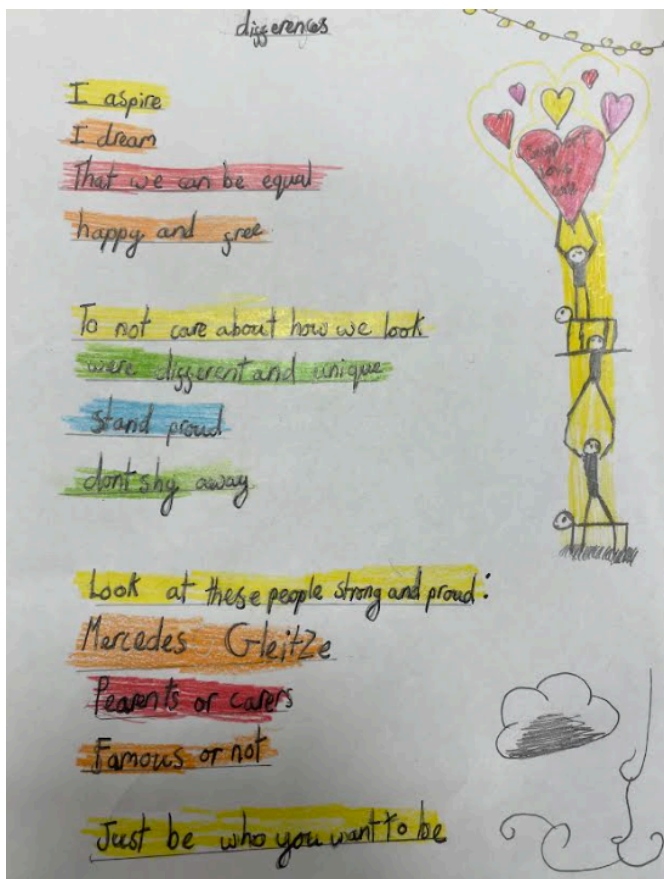 differences
I aspire
I dream
That we can be equal
happy and free
To not care about how we look
were different and unique
stand proud
dont shy away
Look at these people strong and proud:
Mercedes Gleitze
Pearents or carers
Famous or not
Just be who you want to be
Support
love